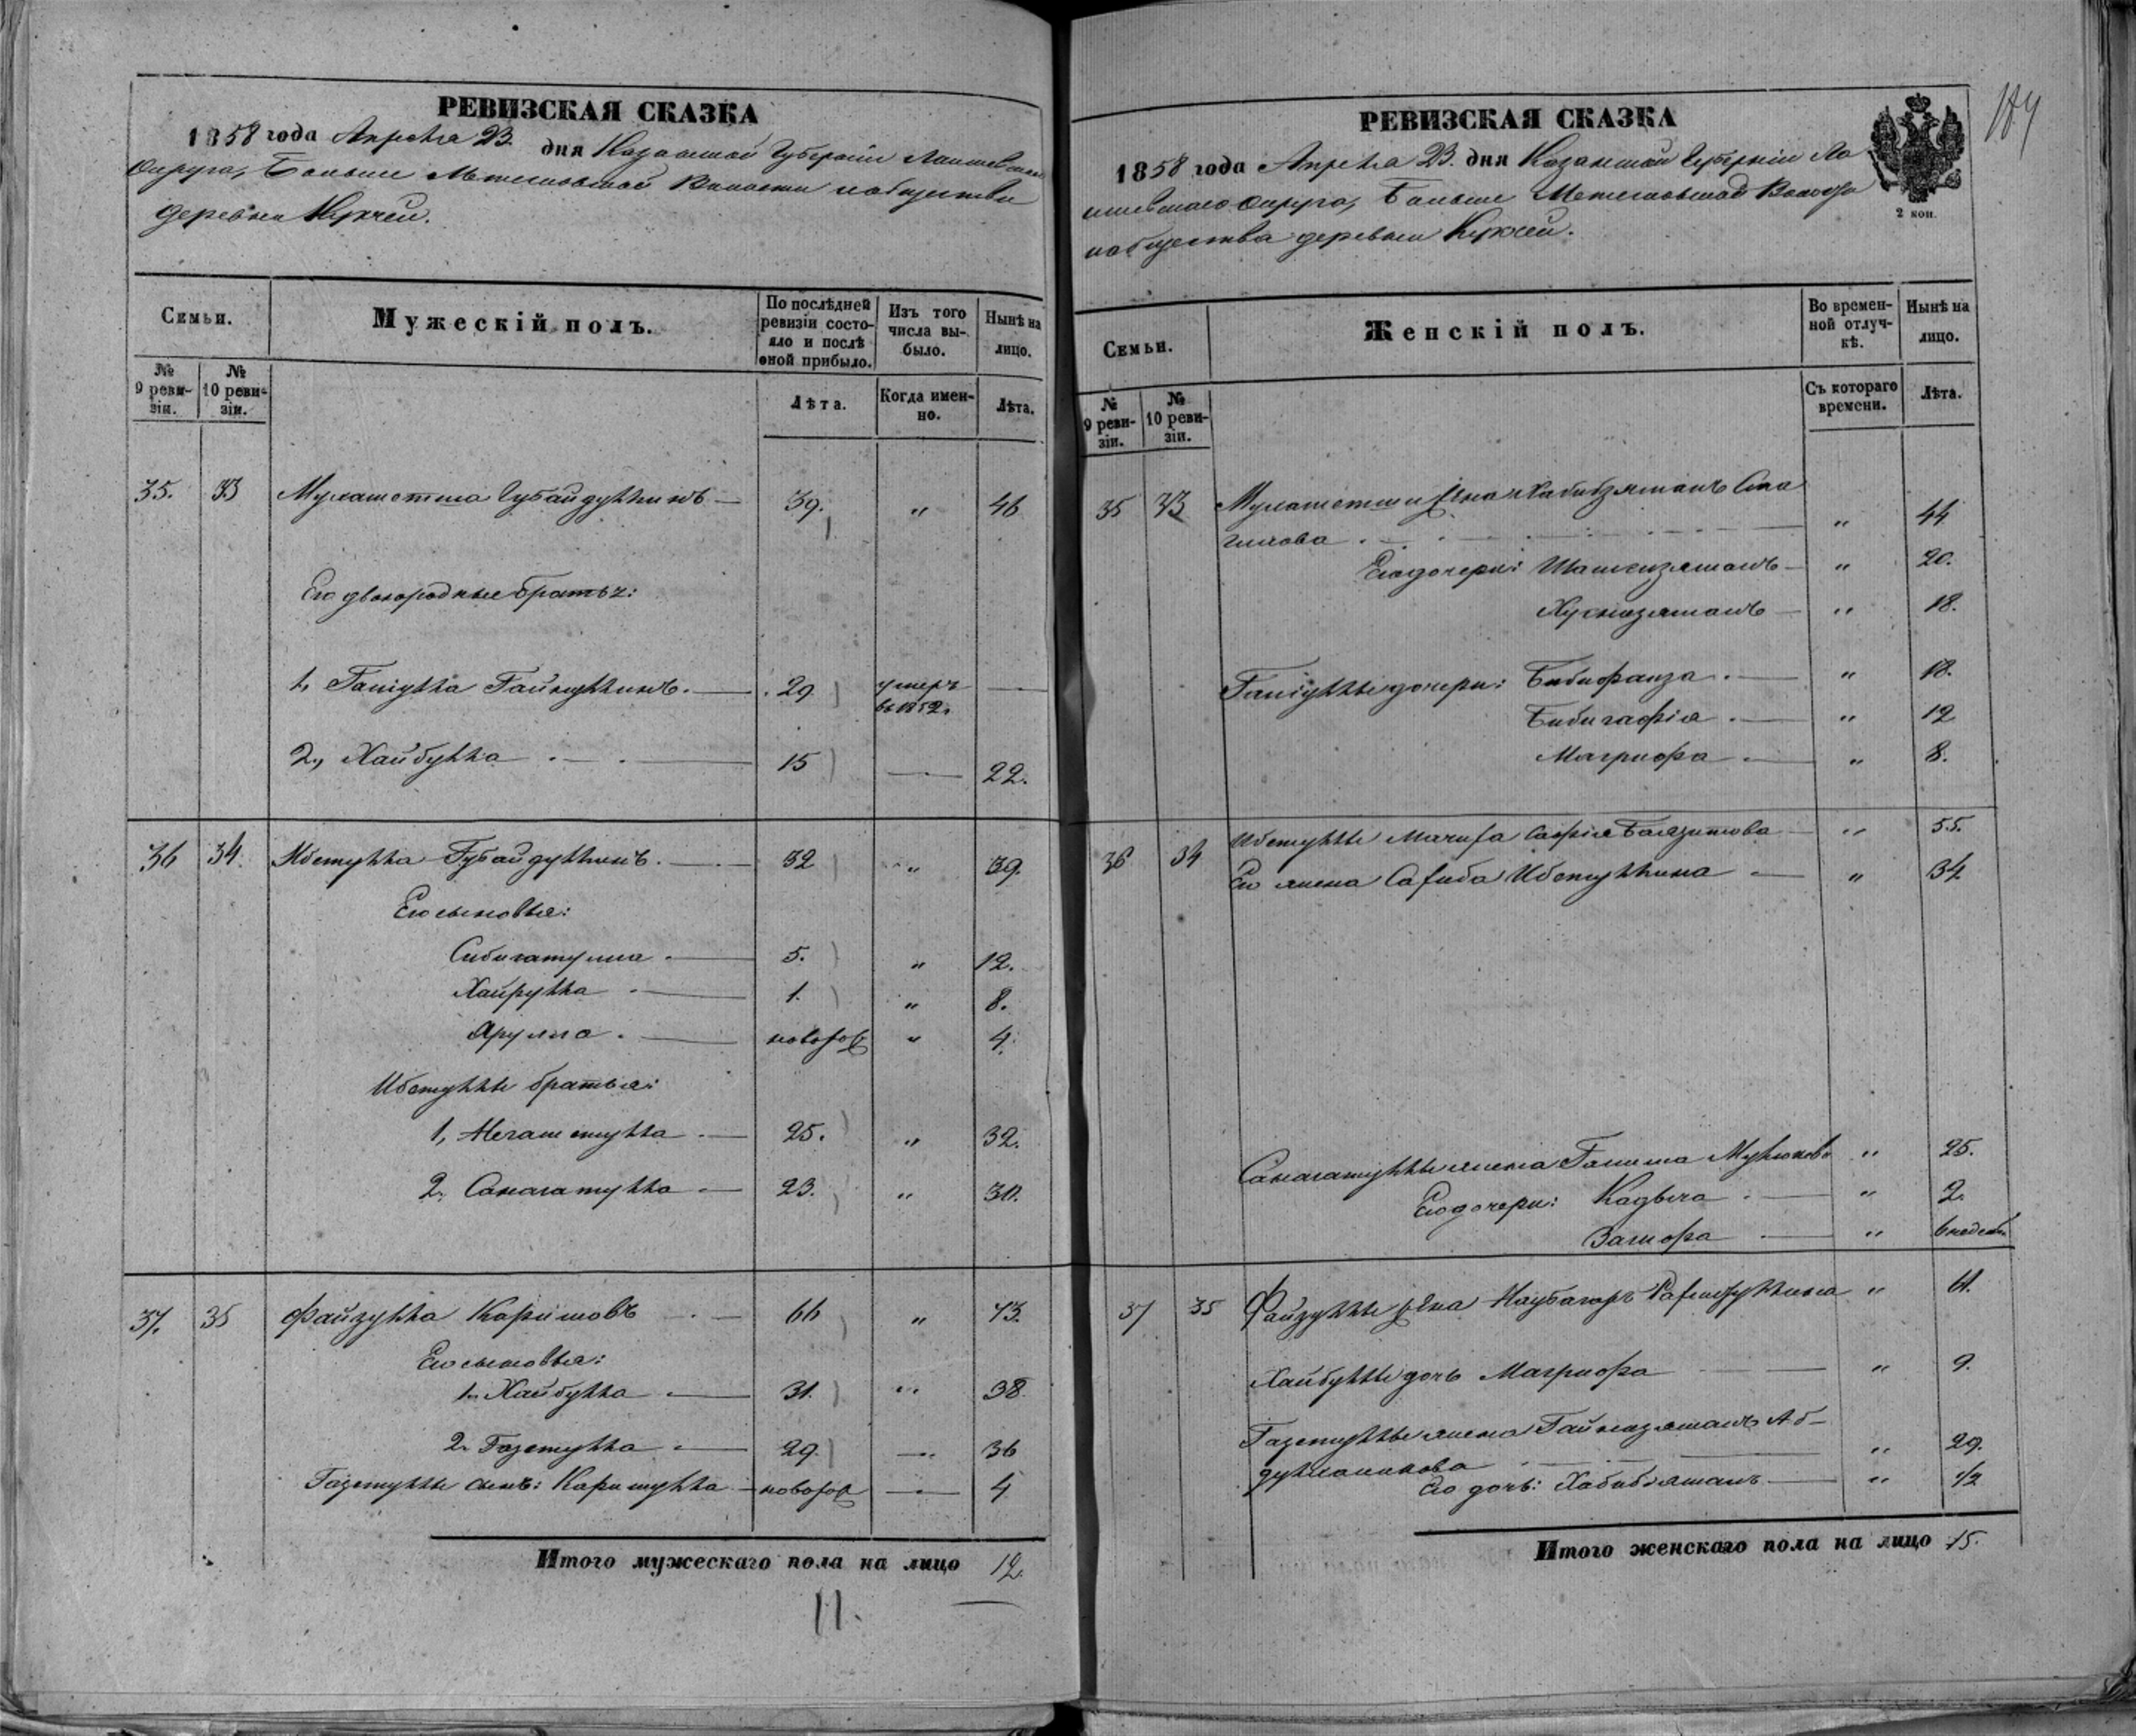 РЕВИЗСКАЯ СКАЗКА
1858 года Апреля 23. дня Казанской Губерніи Лаишевскаго
Округа, Больше Метесковской Волости и общества
деревни Куюкъ
Семьи.
Мужескій полъ.
По послѣдней ревизіи состояло и послѣ оной прибыло.
Изъ того числа выбыло.
Нынѣ на лицо.
№ 9 ревизіи.
№ 10 ревизіи.
Лѣта.
Когда именно.
Лѣта.
35. 33 Мухаметша Губайдуллинъ — 39. " 46
Его двоюродные братья:
1, Гатіулла Гайнуллинъ. — 29 умеръ въ 1852. —
2, Хайбулла — 15 — 22.
36 34 Ибетулла Губайдуллинъ. — 32 " 39.
Его сыновья:
Сибигатулла — 5. " 12.
Хайрулла — 1. " 8.
Ярулла — новорож " 4.
Ибетуллы братья:
1, Негаметулла — 25. " 32.
2, Санагатулла — 23. " 30.
37. 35 Файзулла Каримовъ — 66 " 73.
Его сыновья:
1. Хайбулла — 31. " 38.
2. Газетулла — 29. — 36
Газетуллы сынъ: Каримулла — новорож — 4
Итого мужескаго пола на лицо 12.
11.
184
РЕВИЗСКАЯ СКАЗКА
1858 года Апреля 23. дня Казанской Губерніи Ла
ишевскаго Округа, Больше Метесковской Волости
и общества деревни
2 коп.
Семьи.
Женскій полъ.
Во временной отлучкѣ.
Нынѣ на лицо.
№ 9 ревизіи.
№ 10 ревизіи.
Съ котораго времени.
Лѣта.
35 33 Мухаметши жена Хабибзяманъ Сма
гилова — " 44
Его дочери: Шамсизяманъ — " 20.
Хуснизяманъ — " 18.
Гатіуллы дочери: Бибифаиза — " 18.
Бибигафія — " 12
Магрифа — " 8.
36 34 Ибетуллы мачиха Сафія Баязитова — " 55.
Его жена Сагиба Ибетуллина — " 34
Санагатуллы жена Галима — " 25.
Его дочери: Кадыча — " 2.
Загифа — " 6 недель
37 35 Файзуллы жена Наубагаръ — " 61.
Хайбуллы дочь Магрифа — " 9.
Газетуллы жена Гайнизяманъ Аб-
дулманнова — " 29.
Его дочь: Хабибзяманъ — " 1/2
Итого женскаго пола на лицо 15.